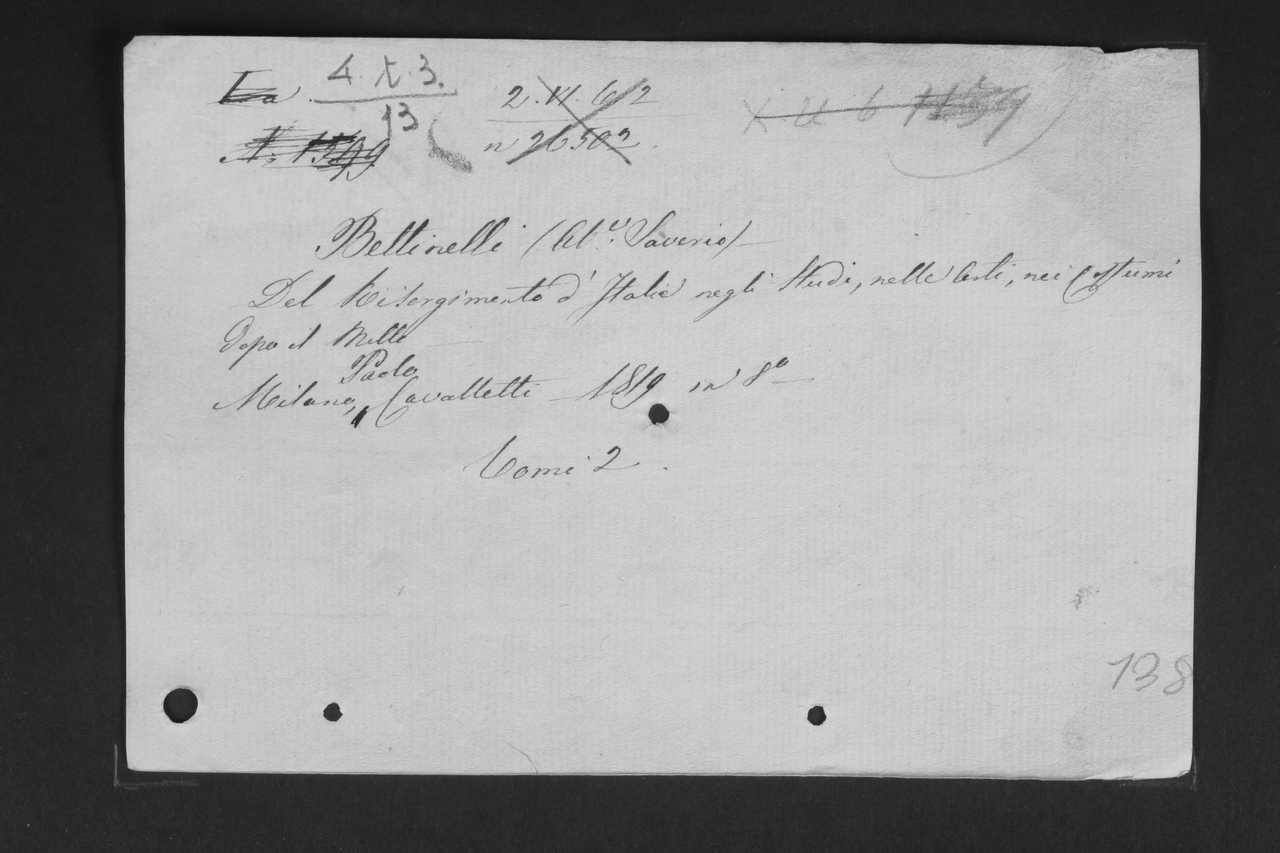 4. t. 3.
13
2. 6/2
n 26502.
Bettinelli (Ab.e Saverio)
Del Risorgimento d'Italia negli Studi, nelle Arti, nei Costumi
dopo il Mille
Paolo
Milano, Cavalletti 1819 in 8º
Tomi 2.
138